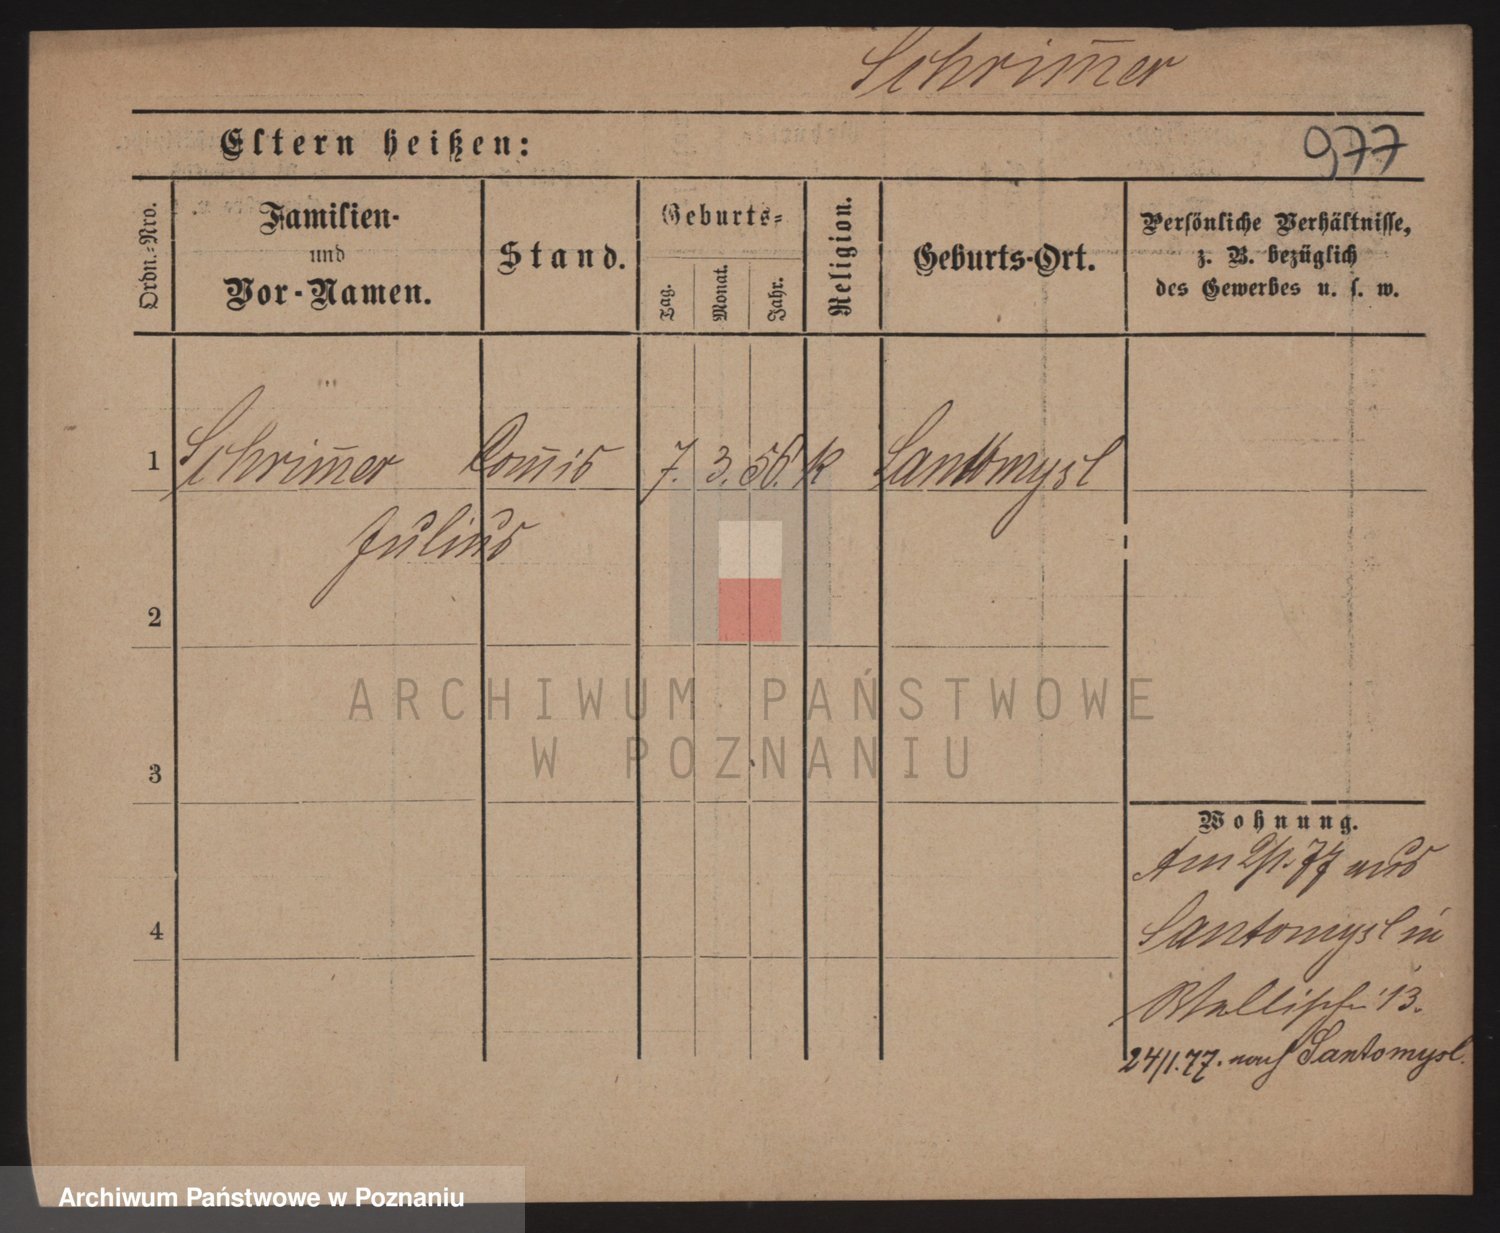 Schrim̄er
Eltern heißen:
977
Ordn.-Nro.
Familien-
und
Vor-Namen.
Stand.
Geburts-
Tag.
Monat.
Jahr.
Religion.
Geburts-Ort.
Persönliche Verhältnisse,
z. B. bezüglich
des Gewerbes u. s. w.
1 Schrim̄er Com̄is 7. 3. 56. k Santomysl
Julius
2
3
4
Wohnung.
Am 2/1. 77 aus
Santomysl in
Wallischei 13.
24/1.77. nach Santomysl.
ARCHIWUM PAŃSTWOWE
W POZNANIU
Archiwum Państwowe w Poznaniu